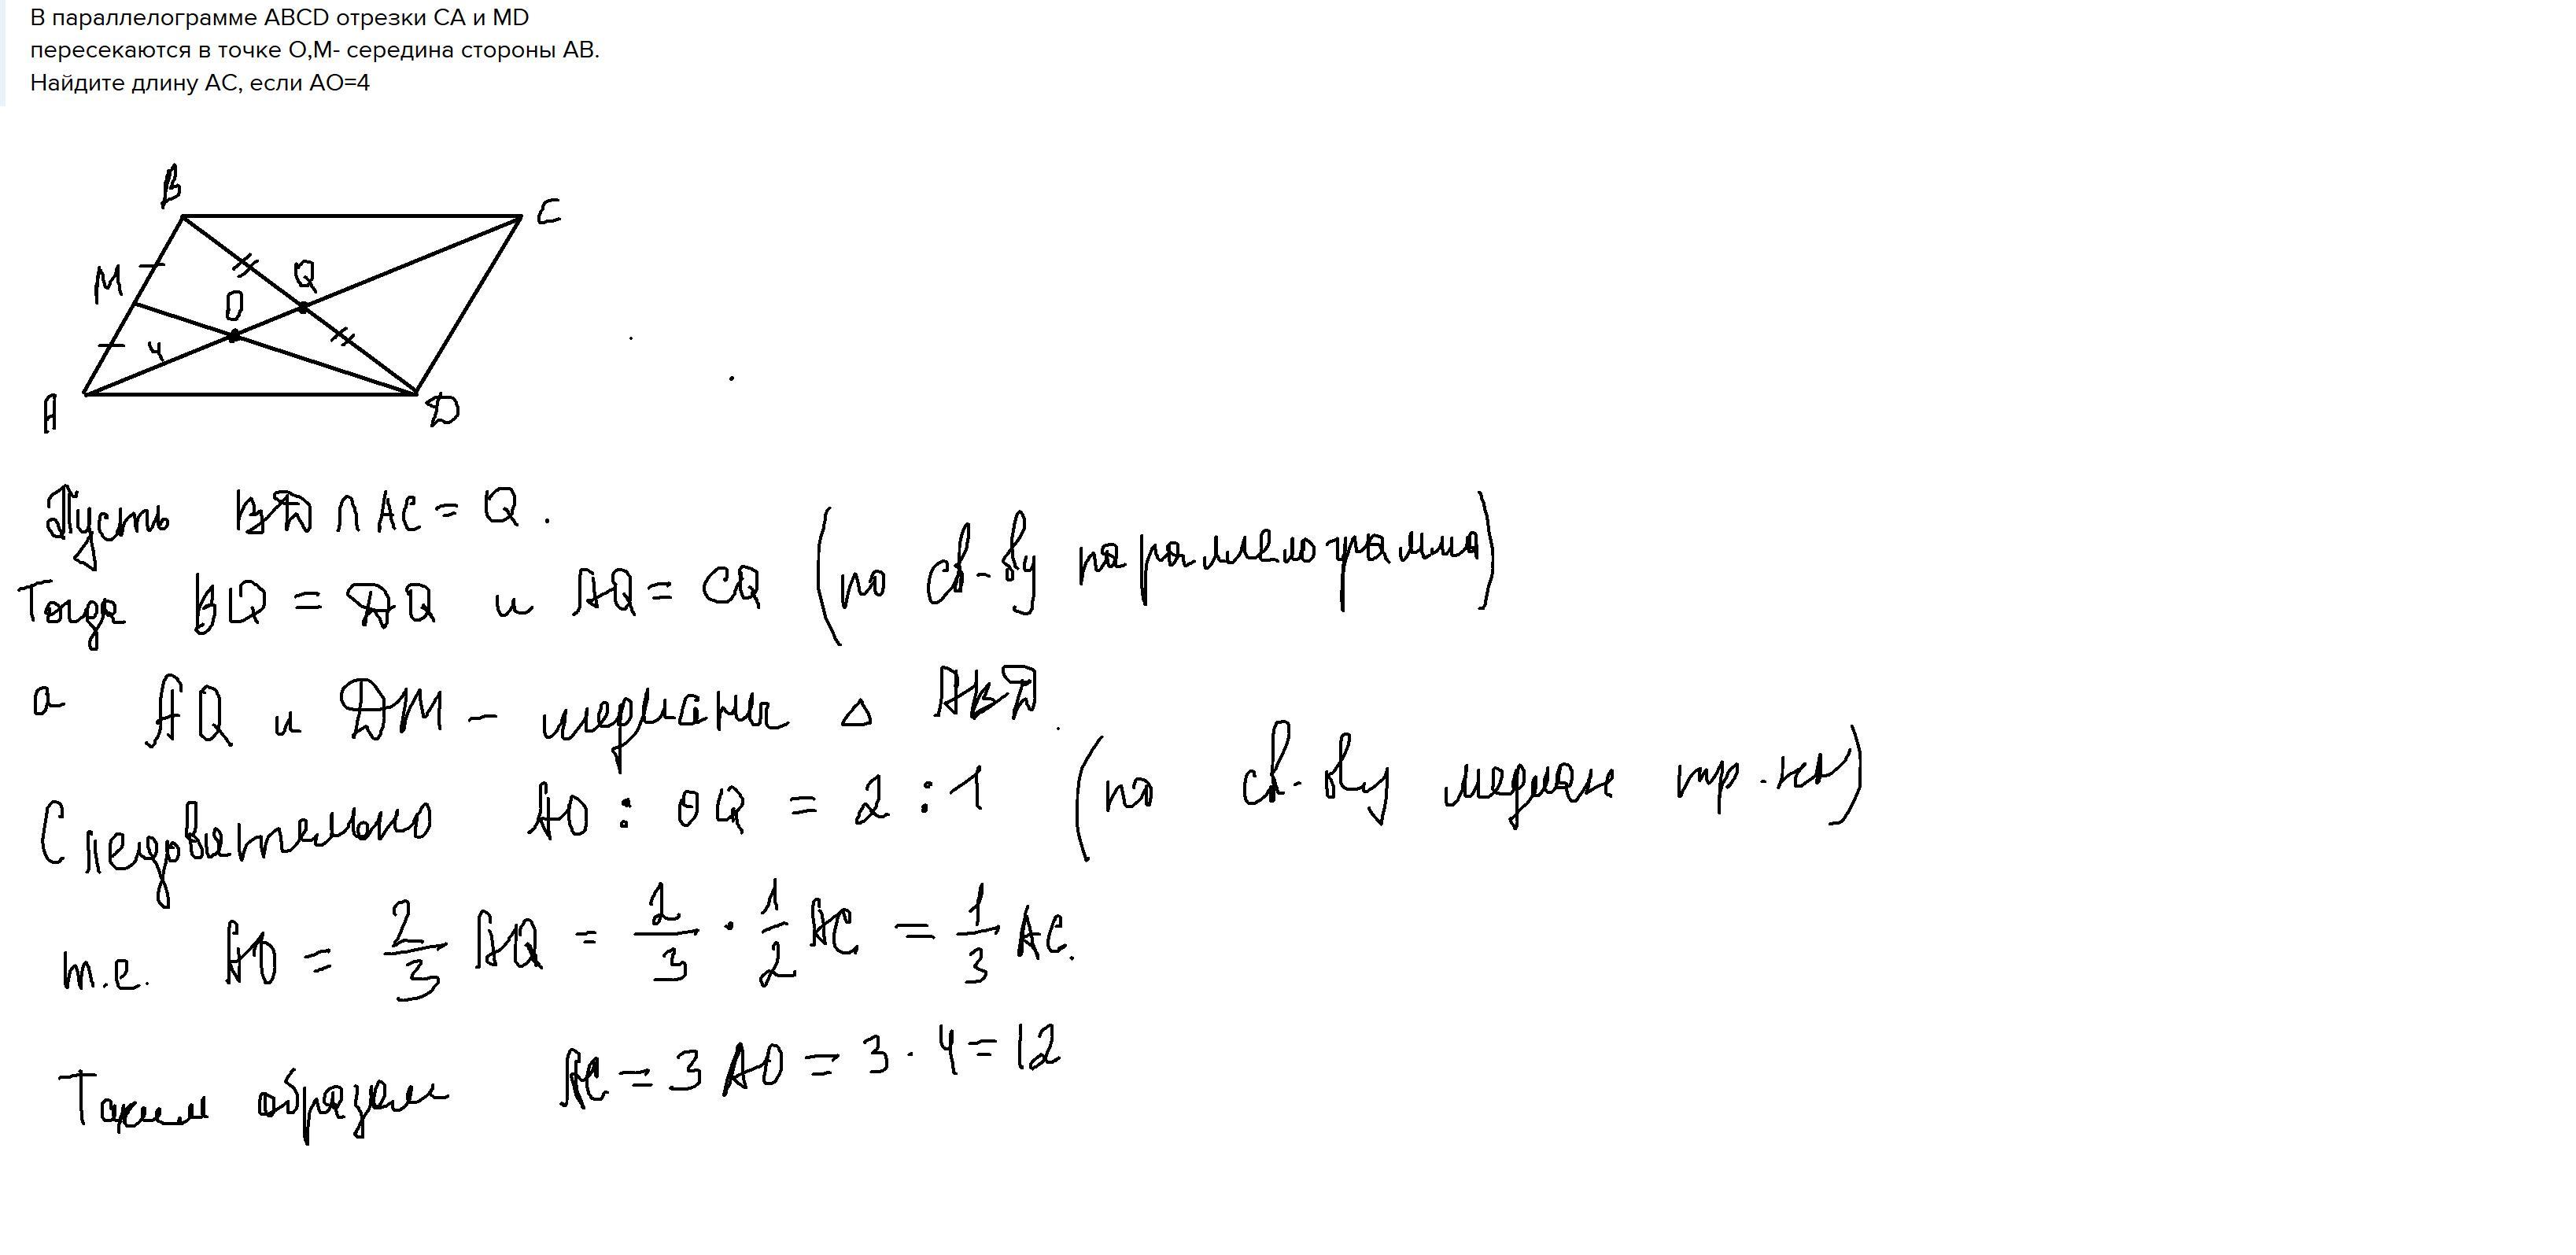 В параллелограмме ABCD отрезки CA и MD
пересекаются в точке O,M- середина стороны AB.
Найдите длину AC, если AO=4
B
C
M
Q
O
4
A
D
Пусть BD ∩ AC = Q.
Тогда BQ = DQ и AQ = CQ (по св-ву параллелограмма)
а AQ и DM – медианы △ ABD.
Следовательно AO : OQ = 2 : 1 (по св-ву медиан тр.-ка)
т.е. AO = 2/3 AQ = 2/3 · 1/2 AC = 1/3 AC.
Таким образом AC = 3 AO = 3 · 4 = 12